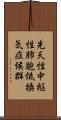 先天性中枢
性肺胞低換
気症候群